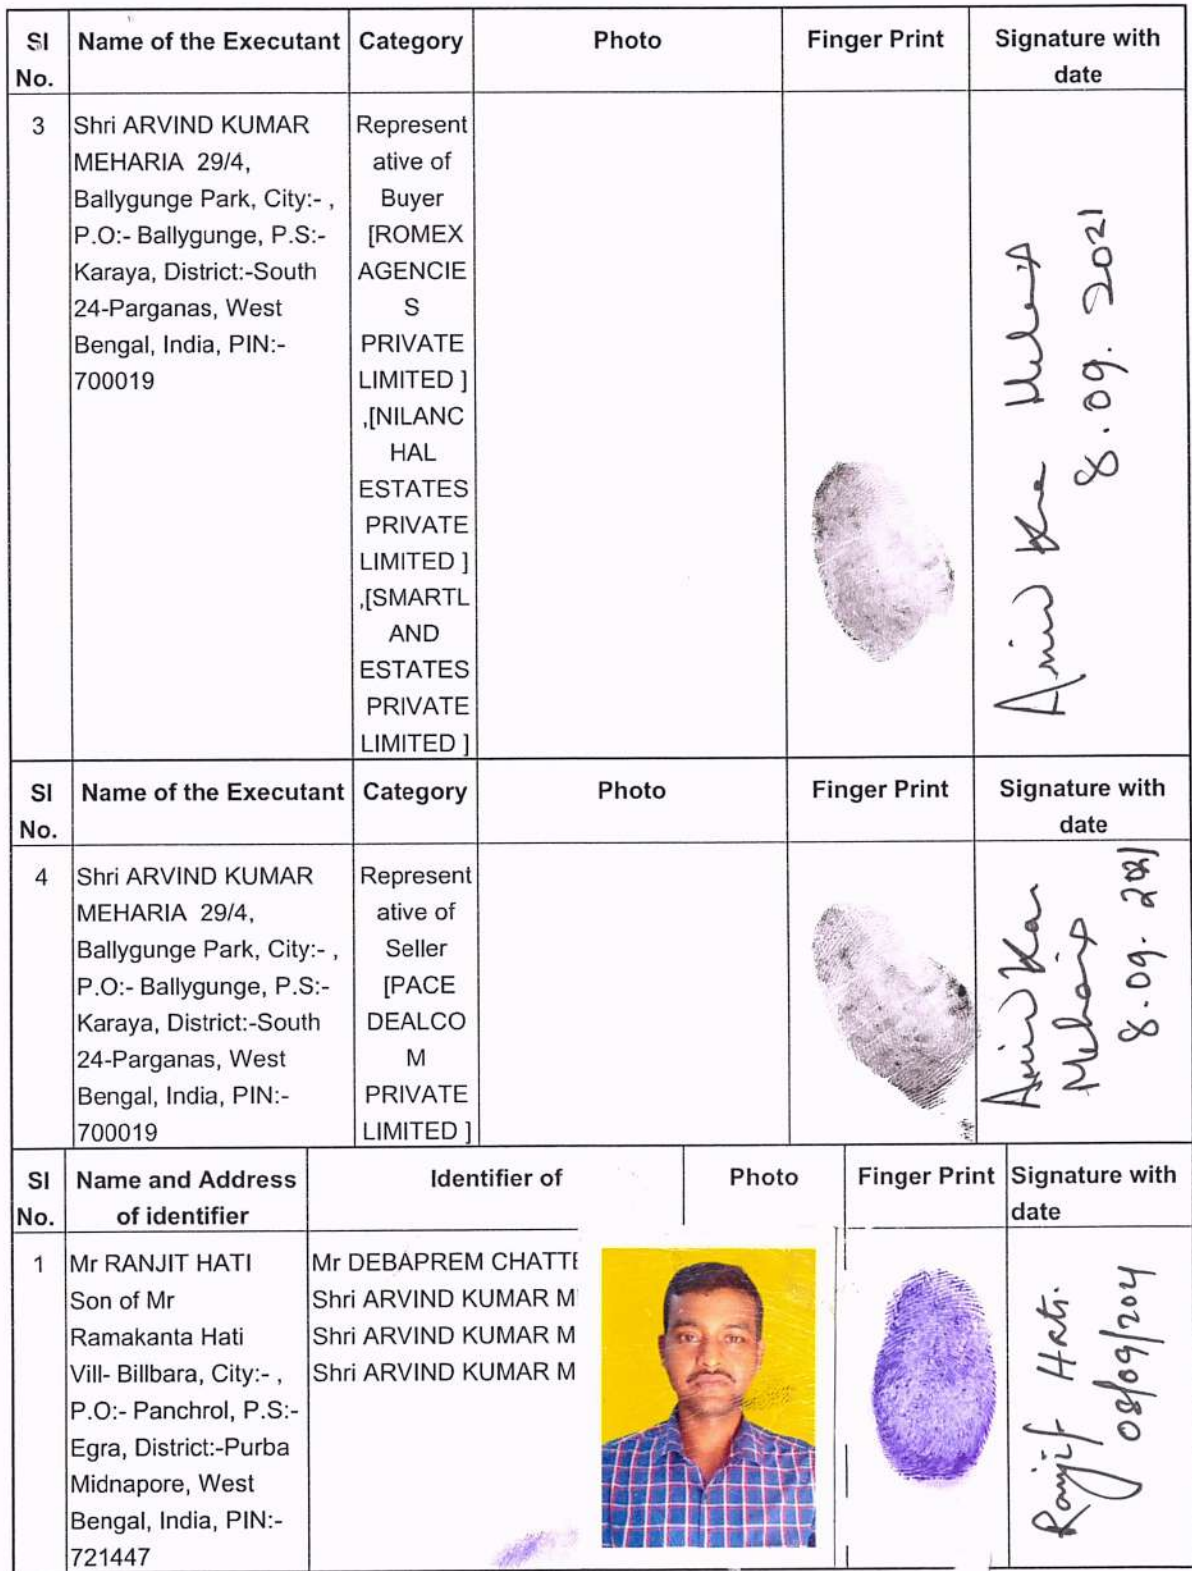 Sl No. Name of the Executant Category Photo Finger Print Signature with date
3 Shri ARVIND KUMAR MEHARIA 29/4, Ballygunge Park, City:- , P.O:- Ballygunge, P.S:- Karaya, District:-South 24-Parganas, West Bengal, India, PIN:- 700019
Represent
ative of
Buyer
[ROMEX
AGENCIE
S
PRIVATE
LIMITED ]
,[NILANC
HAL
ESTATES
PRIVATE
LIMITED ]
,[SMARTL
AND
ESTATES
PRIVATE
LIMITED ]
8.09.2021
Sl No. Name of the Executant Category Photo Finger Print Signature with date
4 Shri ARVIND KUMAR MEHARIA 29/4, Ballygunge Park, City:- , P.O:- Ballygunge, P.S:- Karaya, District:-South 24-Parganas, West Bengal, India, PIN:- 700019
Represent
ative of
Seller
[PACE
DEALCO
M
PRIVATE
LIMITED ]
8.09.2021
Sl No. Name and Address of identifier Identifier of Photo Finger Print Signature with date
1 Mr RANJIT HATI
Son of Mr
Ramakanta Hati
Vill- Billbara, City:- ,
P.O:- Panchrol, P.S:-
Egra, District:-Purba
Midnapore, West
Bengal, India, PIN:-
721447
Mr DEBAPREM CHATTE
Shri ARVIND KUMAR M
Shri ARVIND KUMAR M
Shri ARVIND KUMAR M
Ranjit Hati.